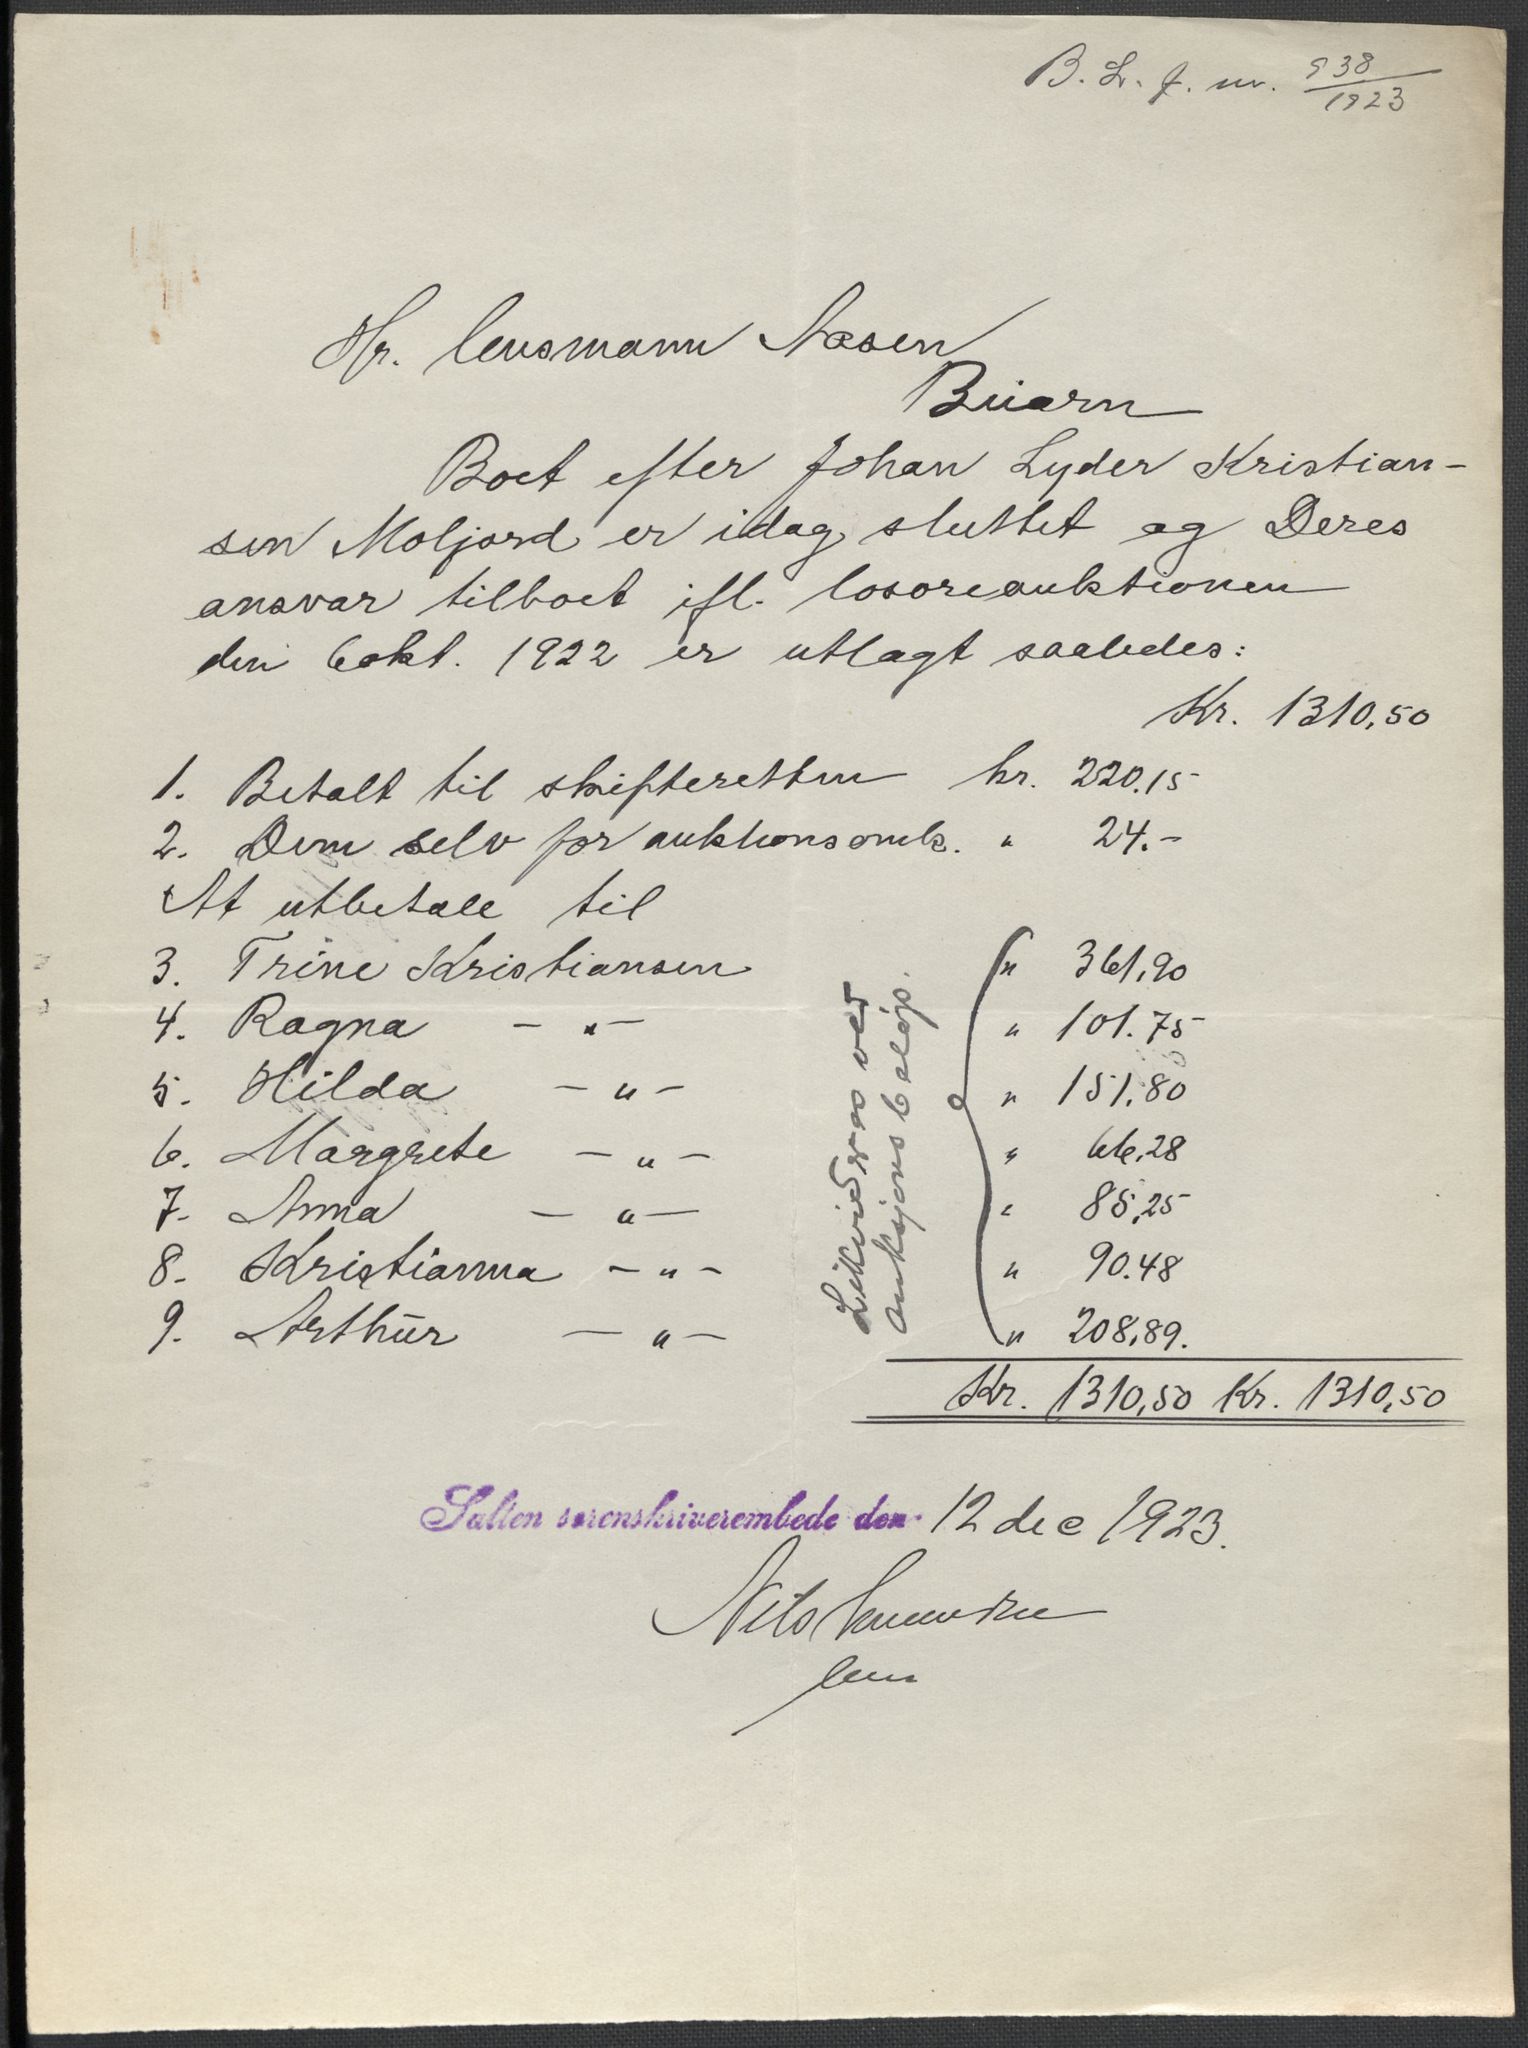 B. L. J. nr. 938/1923
Hr. lensmann Aasen
Beiarn
Boet efter Johan Lyder Kristian-
sen Moljord er idag sluttet og Deres
ansvar tilboet ifl. losoreauktionen
den 6 okt. 1922 er utlagt saaledes:
Kr. 1310,50
1. Betalt til skifteretten kr. 220.15
2. Dem selv for auktionsomk. " 24.-
At utbetale til
3. Trine Kristiansen " 361,90
4. Ragna - " - " 101.75
5. Hilda - " - " 151.80
6. Margrete - " - " 66,28
7. Anna - " - " 85,25
8. Kristianna - " - " 90.48
9. Arthur - " - " 208,89.
Likvideres ved
auksjonsbeløp.
Kr. 1310,50 Kr. 1310,50
Salten sorenskriverembede den 12 dec 1923.
Nils